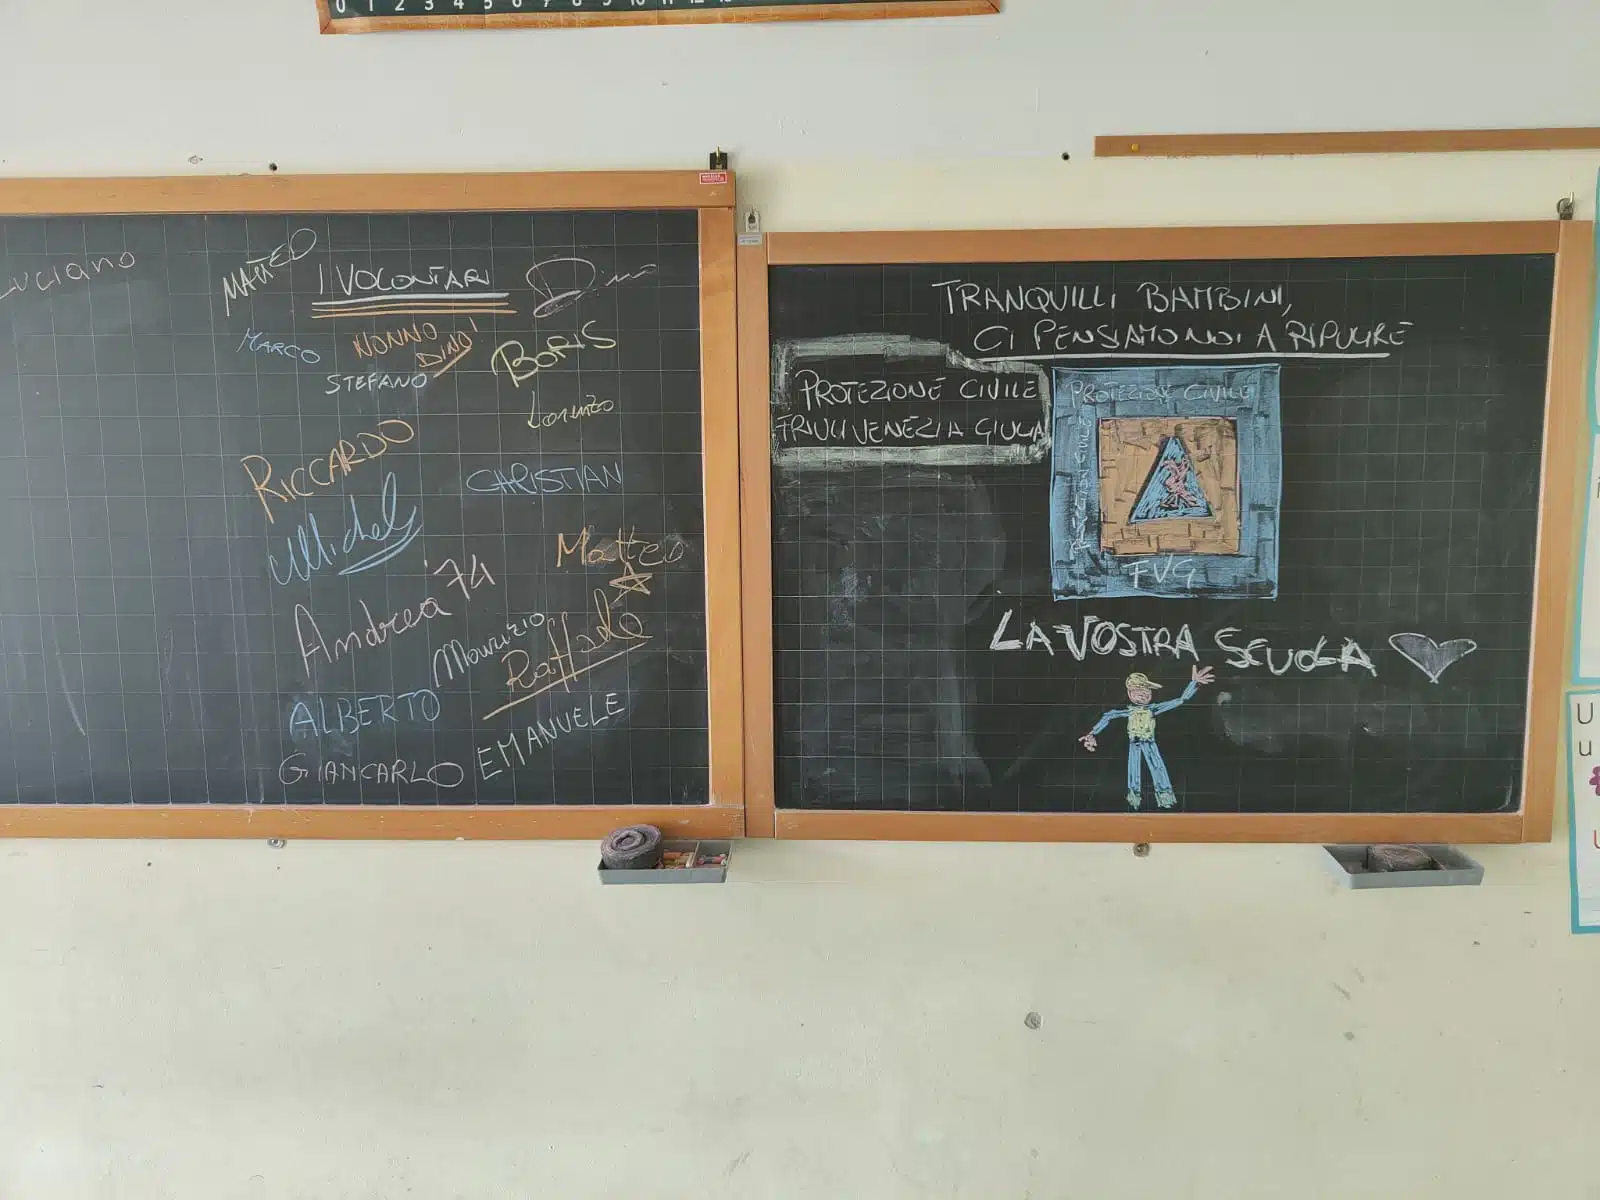 0 1 2 3 4 5 6 7 8 9 10 11 12
Luciano
MATTEO
I VOLONTARI
Dino
MARCO
NONNO
DINO!
BORIS
STEFANO
Lorenzo
RICCARDO
CHRISTIAN
Michele
Matteo
Andrea '74
Maurizio
Raffaele
ALBERTO
EMANUELE
GIANCARLO
TRANQUILLI BAMBINI,
CI PENSIAMO NOI A RIPULIRE
PROTEZIONE CIVILE
FRIULI VENEZIA GIULIA
PROTEZIONE CIVILE
PROTEZIONE CIVILE
FVG
LA VOSTRA SCUOLA
U
u